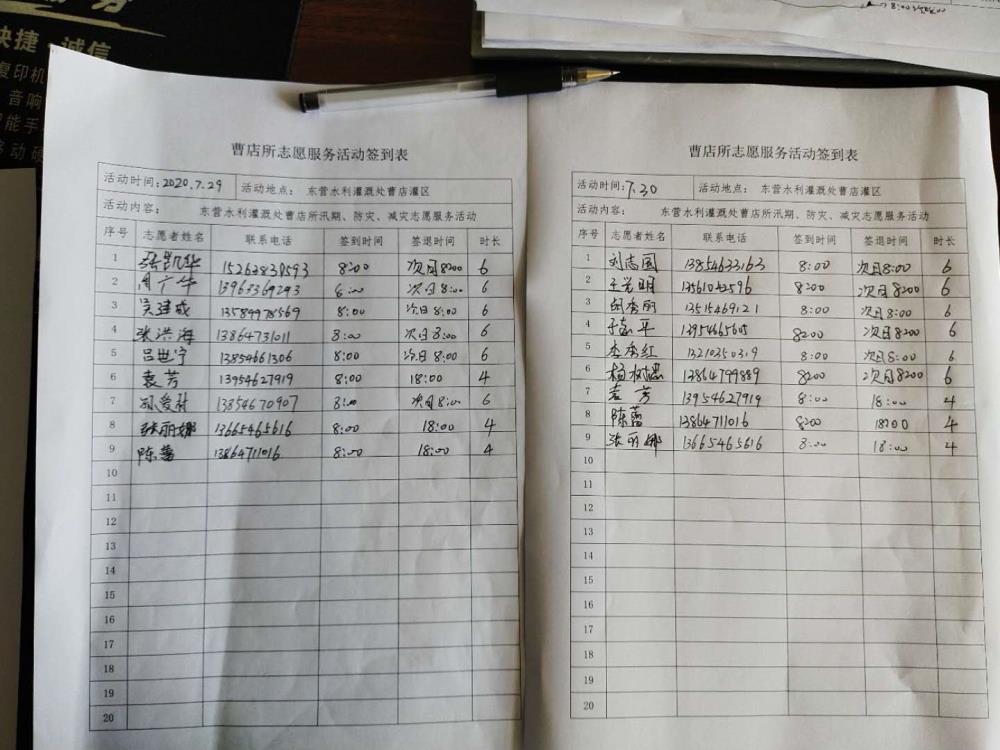 快捷·诚信
复印机
音响
能手
移动硬
曹店所志愿服务活动签到表
活动时间:2020.7.29 活动地点: 东营水利灌溉处曹店灌区
活动内容: 东营水利灌溉处曹店所汛期、防灾、减灾志愿服务活动
序号 志愿者姓名 联系电话 签到时间 签退时间 时长
1 张凯华 15263837593 8:00 次日8:00 6
2 周广华 13963369293 8:00 次日8:00 6
3 吴建成 13589978569 8:00 次日8:00 6
4 张洪海 13864731011 8:00 次日8:00 6
5 吕世宁 13854661306 8:00 次日8:00 6
6 袁芳 13954627919 8:00 18:00 4
7 13854670907 8:00 次日8:00 6
8 张丽娜 13665465616 8:00 18:00 4
9 陈蕾 13864711016 8:00 18:00 4
10
11
12
13
14
15
16
17
18
19
20
曹店所志愿服务活动签到表
活动时间:7.30 活动地点: 东营水利灌溉处曹店灌区
活动内容: 东营水利灌溉处曹店所汛期、防灾、减灾志愿服务活动
序号 志愿者姓名 联系电话 签到时间 签退时间 时长
1 刘志国 13854633163 8:00 次日8:00 6
2 王光明 13561042596 8:00 次日8:00 6
3 胡秀丽 13515469121 8:00 次日8:00 6
4 于志平 13954665605 8:00 次日8:00 6
5 李秀红 13210350319 8:00 次日8:00 6
6 杨树忠 13864799889 8:00 次日8:00 6
7 袁芳 13954627919 8:00 18:00 4
8 陈蕾 13864711016 8:00 18:00 4
9 张丽娜 13665465616 8:00 18:00 4
10
11
12
13
14
15
16
17
18
19
20